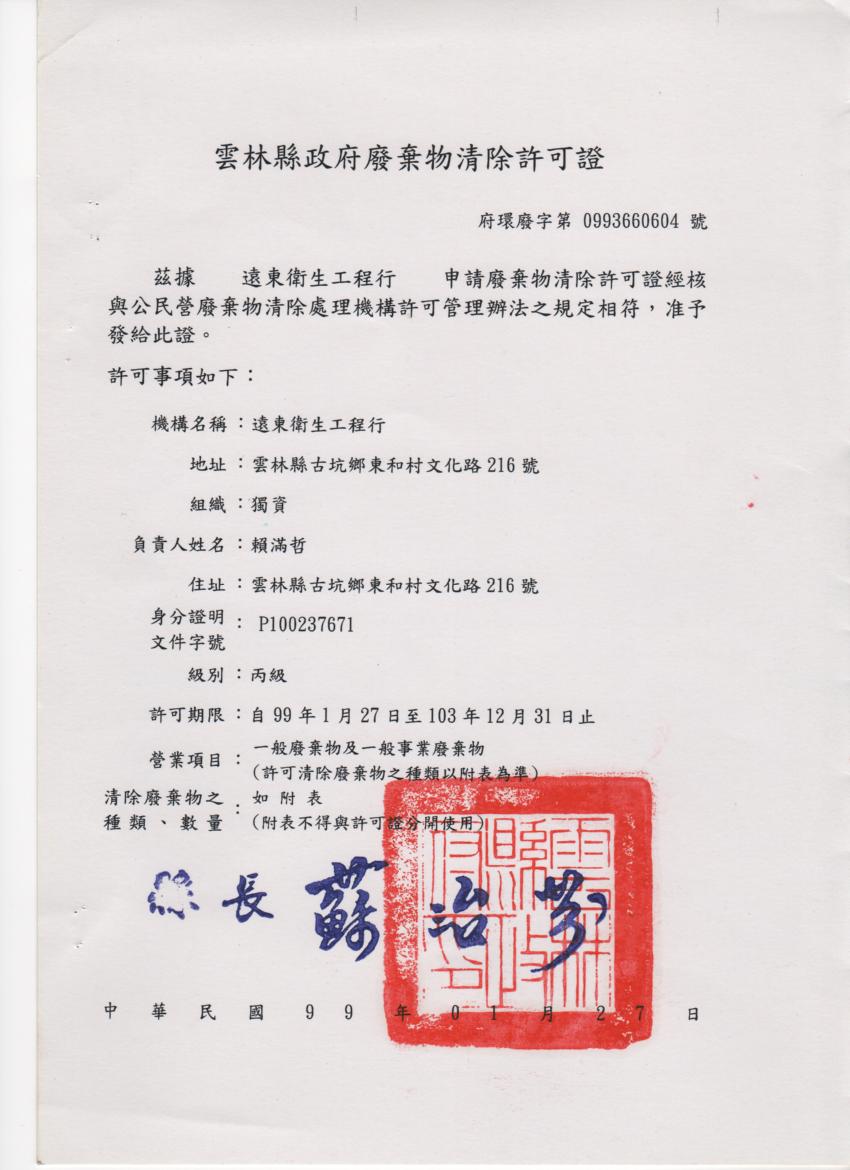 雲林縣政府廢棄物清除許可證
府環廢字第 0993660604 號
茲據 遠東衛生工程行 申請廢棄物清除許可證經核
與公民營廢棄物清除處理機構許可管理辦法之規定相符，准予
發給此證。
許可事項如下：
機構名稱：遠東衛生工程行
地址：雲林縣古坑鄉東和村文化路 216 號
組織：獨資
負責人姓名：賴滿哲
住址：雲林縣古坑鄉東和村文化路 216 號
身分證明
文件字號：P100237671
級別：丙級
許可期限：自 99 年 1 月 27 日至 103 年 12 月 31 日止
營業項目：一般廢棄物及一般事業廢棄物
(許可清除廢棄物之種類以附表為準)
清除廢棄物之
種類、數量：如 附 表
(附表不得與許可證分開使用)
縣長 蘇治芬
雲林縣政府印
中 華 民 國 9 9 年 0 1 月 2 7 日